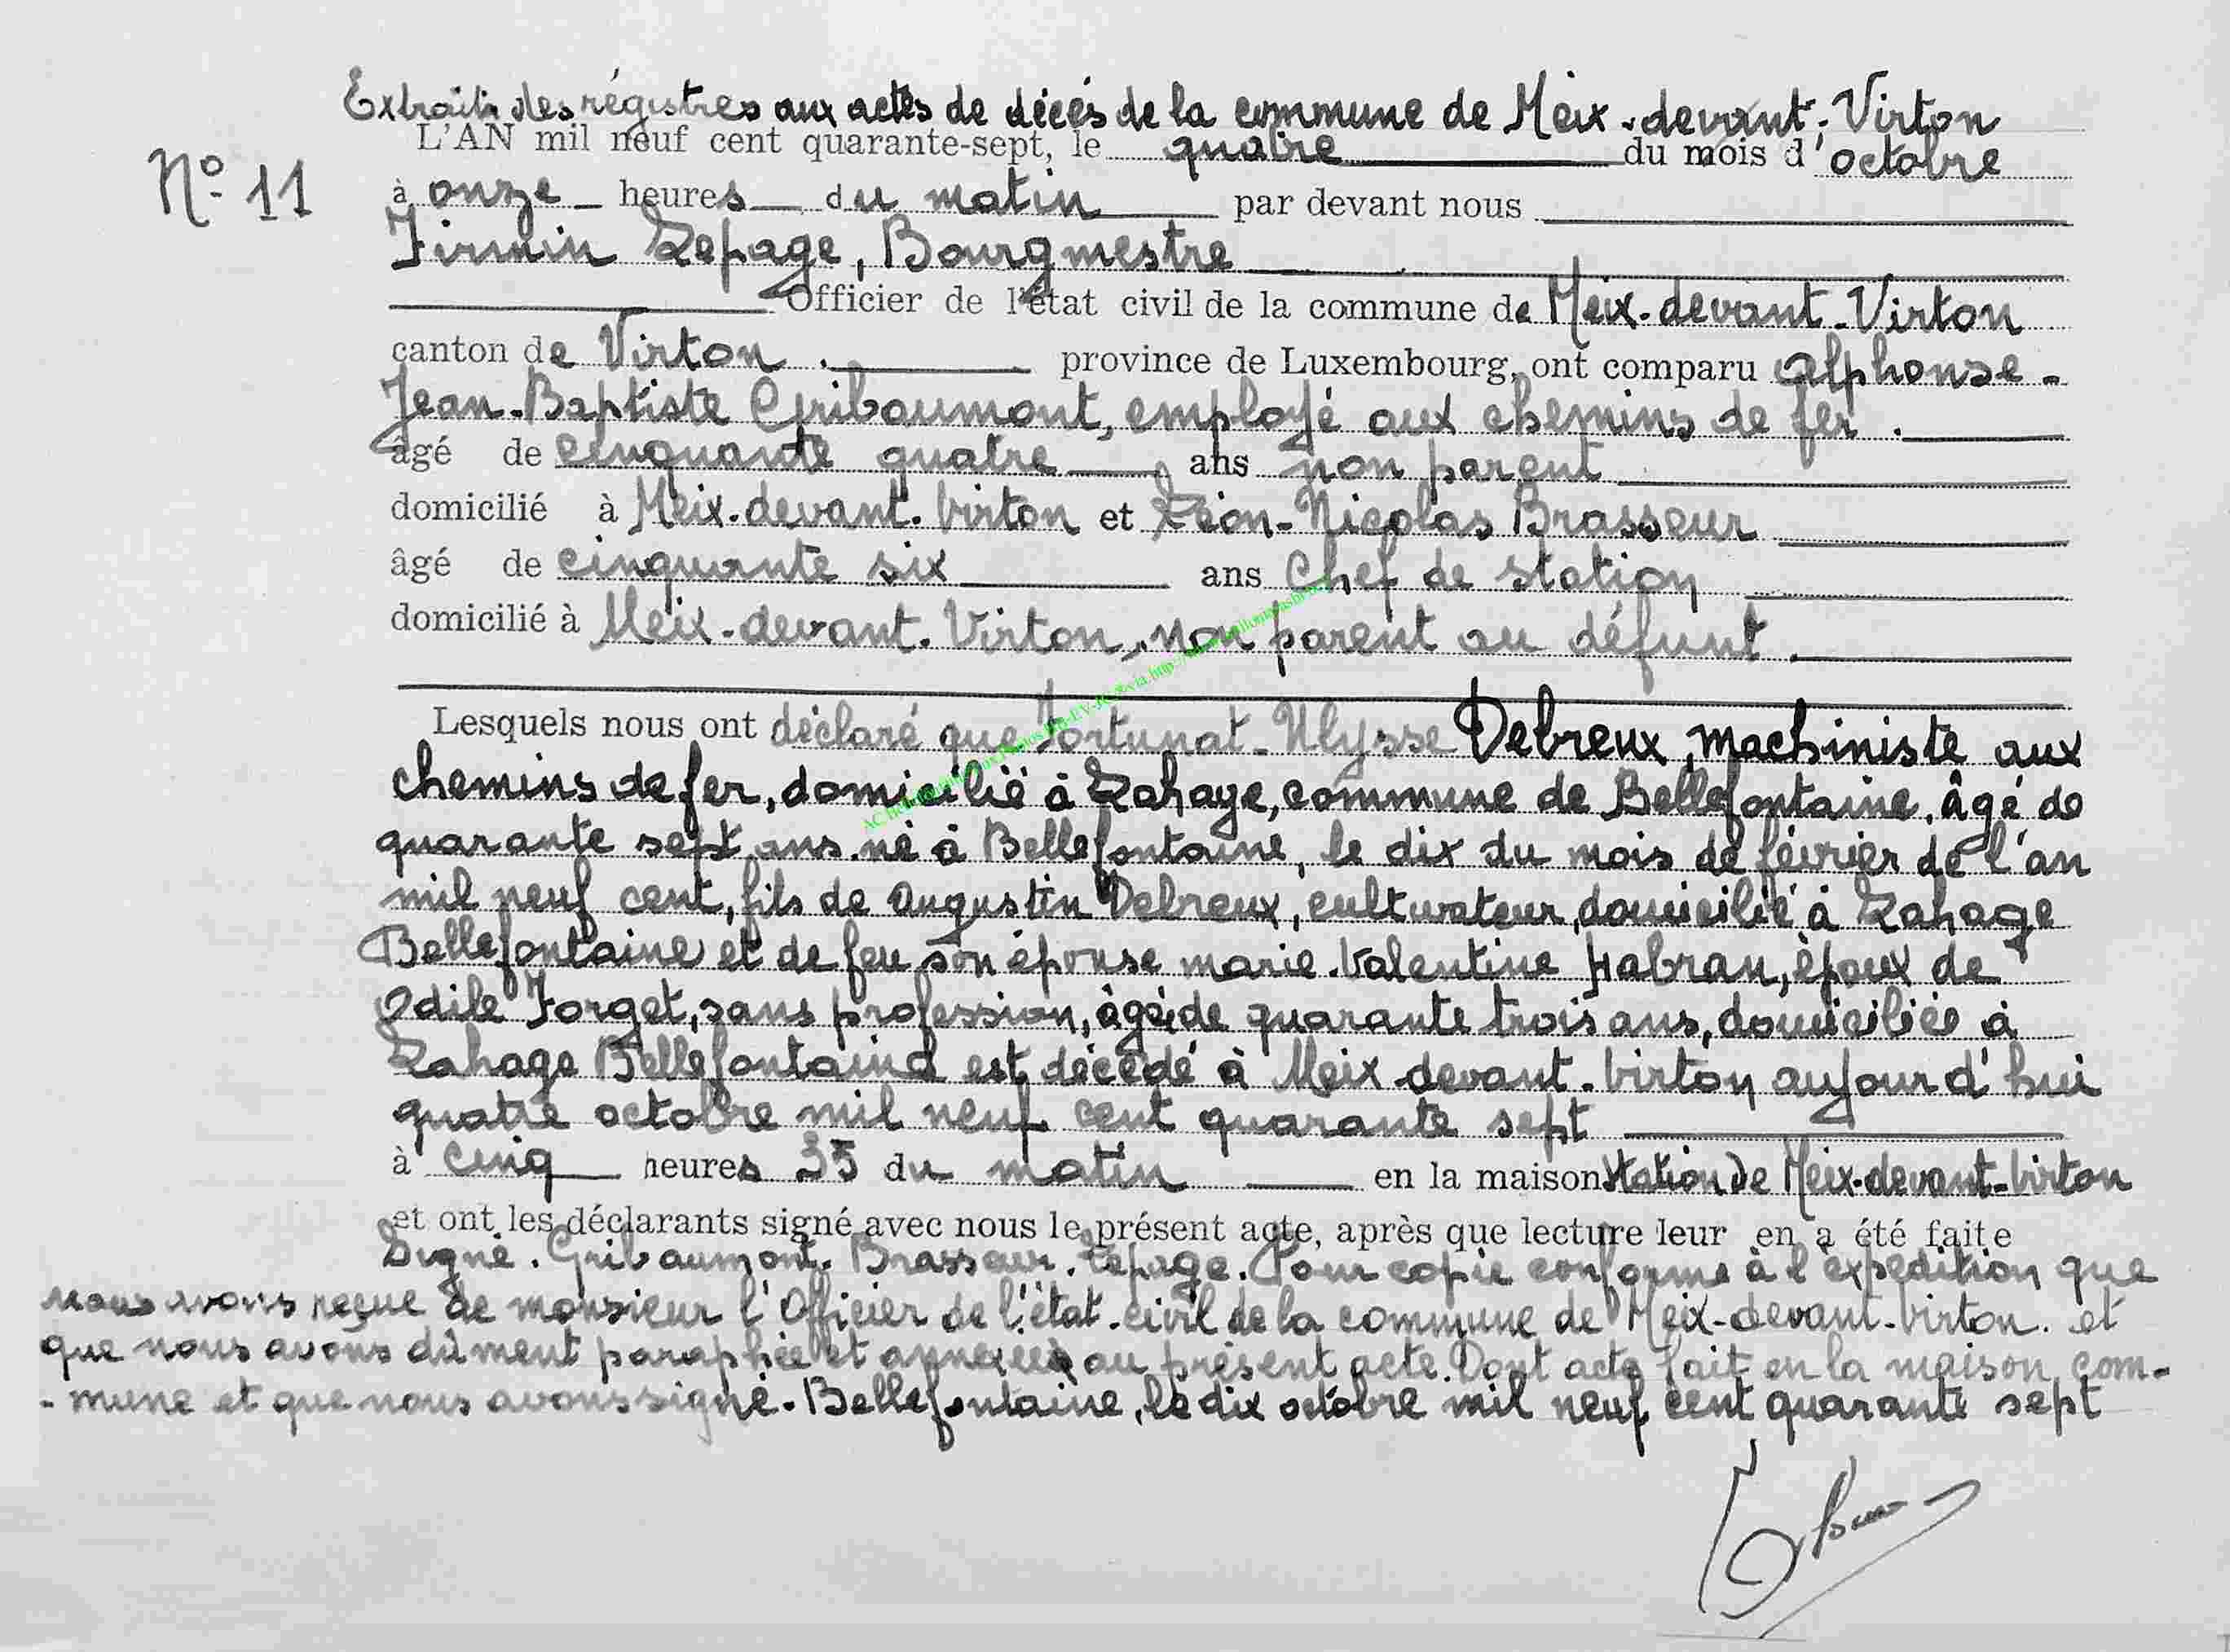 Extrait des régistres aux actes de décès de la commune de Meix-devant-Virton
L'AN mil neuf cent quarante-sept, le quatre du mois d'octobre
N° 11
à onze heures du matin par devant nous
Firmin Lepage, Bourgmestre
Officier de l'état civil de la commune de Meix-devant-Virton
canton de Virton. province de Luxembourg, ont comparu Alphonse-
Jean-Baptiste Gribaumont, employé aux chemins de fer.
âgé de cinquante quatre ans non parent
domicilié à Meix-devant-Virton et Léon-Nicolas Brasseur
âgé de cinquante six ans Chef de station
domicilié à Meix-devant-Virton, non parent au défunt.
Lesquels nous ont déclaré que Fortunat-Ulysse Debreux, machiniste aux
chemins de fer, domicilié à Lahage, commune de Bellefontaine, âgé de
quarante sept ans, né à Bellefontaine, le dix du mois de février de l'an
mil neuf cent, fils de Augustin Debreux, cultivateur, domicilié à Lahage
Bellefontaine et de feu son épouse marie-Valentine Habran, époux de
Odile Forget, sans profession, âgée de quarante trois ans, domiciliée à
Lahage Bellefontaine est décédé à Meix-devant-Virton aujourd'hui
quatre octobre mil neuf cent quarante sept
à cinq heures 35 du matin en la maison Station de Meix-devant-Virton
et ont les déclarants signé avec nous le présent acte, après que lecture leur en a été faite
Signé. Gribaumont. Brasseur. Lepage. Pour copie conforme à l'expédition que
nous avons reçue de monsieur l'Officier de l'état-civil de la commune de Meix-devant-Virton. et
que nous avons dûment paraphée et annexée au présent acte. Dont acte fait en la maison com-
-mune et que nous avons signé. Bellefontaine, le dix octobre mil neuf cent quarante sept